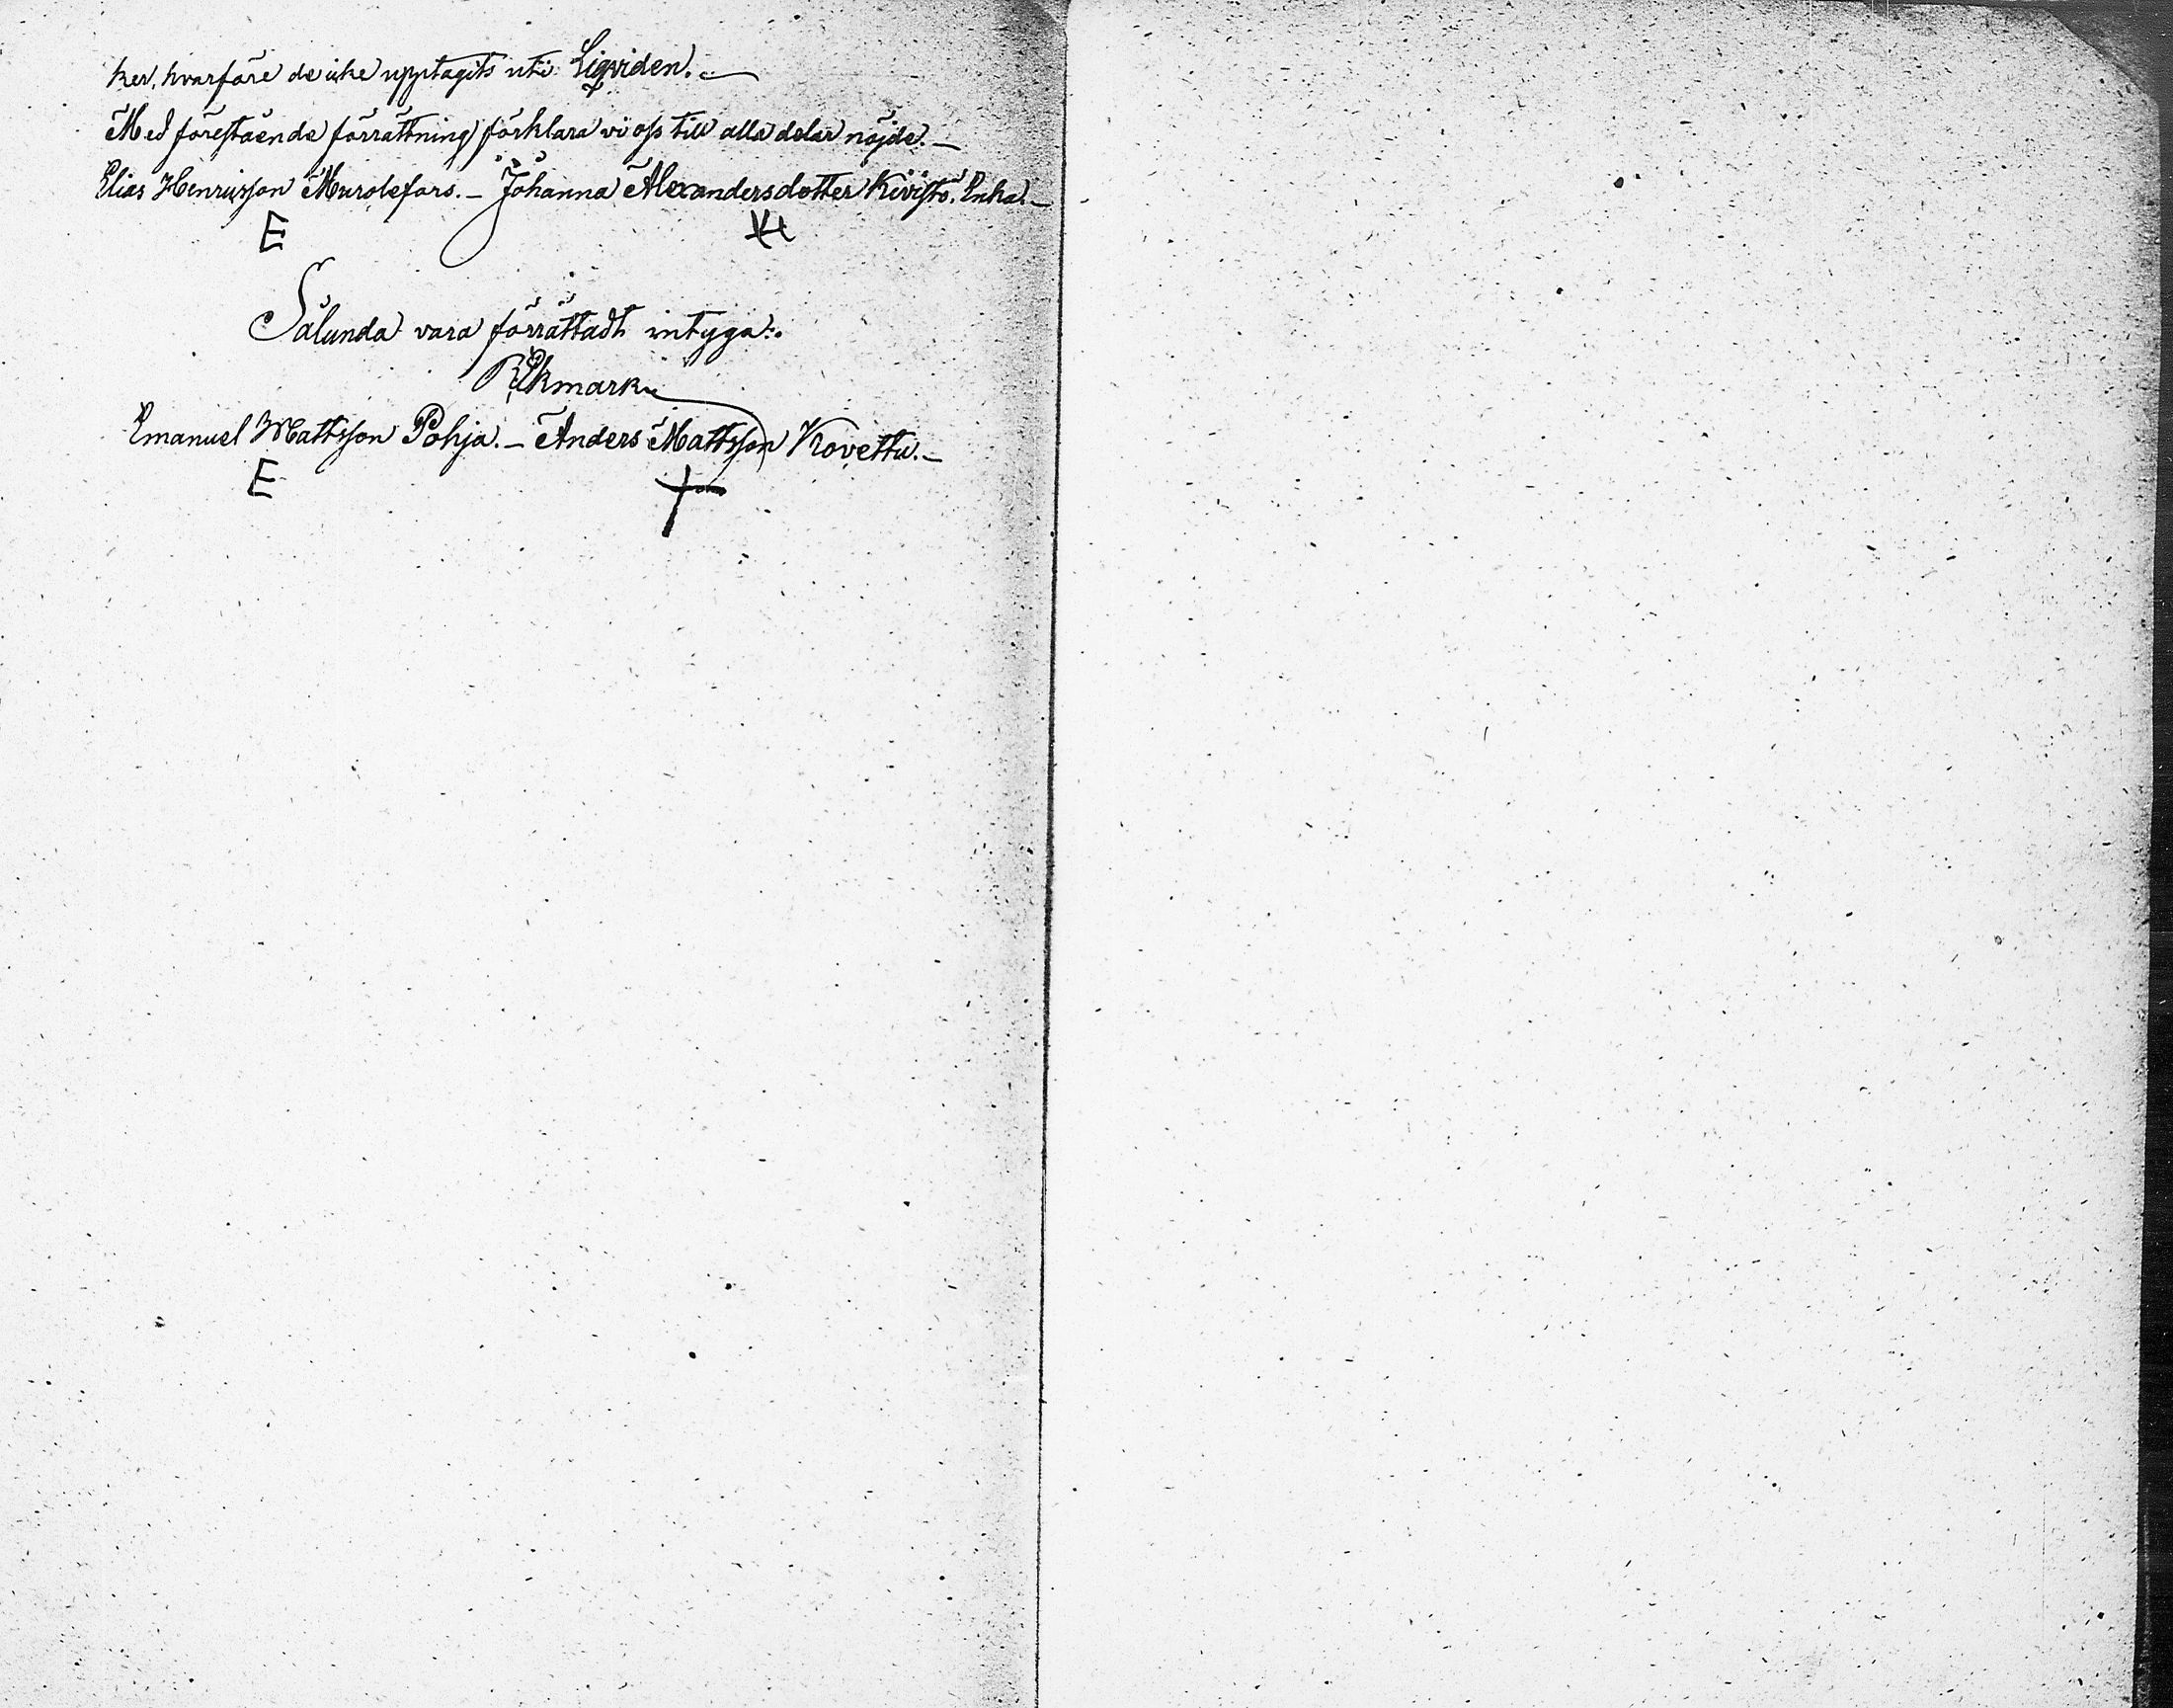 ker, hvarföre de icke upptagits uti Liqviden. —
Med förestående förrättning förklara vi oss till alla delar nöjde. —
Elias Henricsson Murolefors. — Johanna Alexandersdotter Kivistö. Enka. —
E
Sålunda vara förrättadt intyga:.
R. Ekmark
Emanuel Mattsson Pohja. — Anders Mattsson Kovettu. —
E